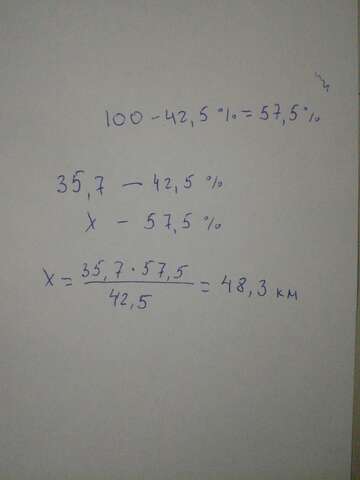 100 - 42,5 % = 57,5 %
35,7 — 42,5 %
x - 57,5 %
x = 35,7 · 57,5 / 42,5 = 48,3 км